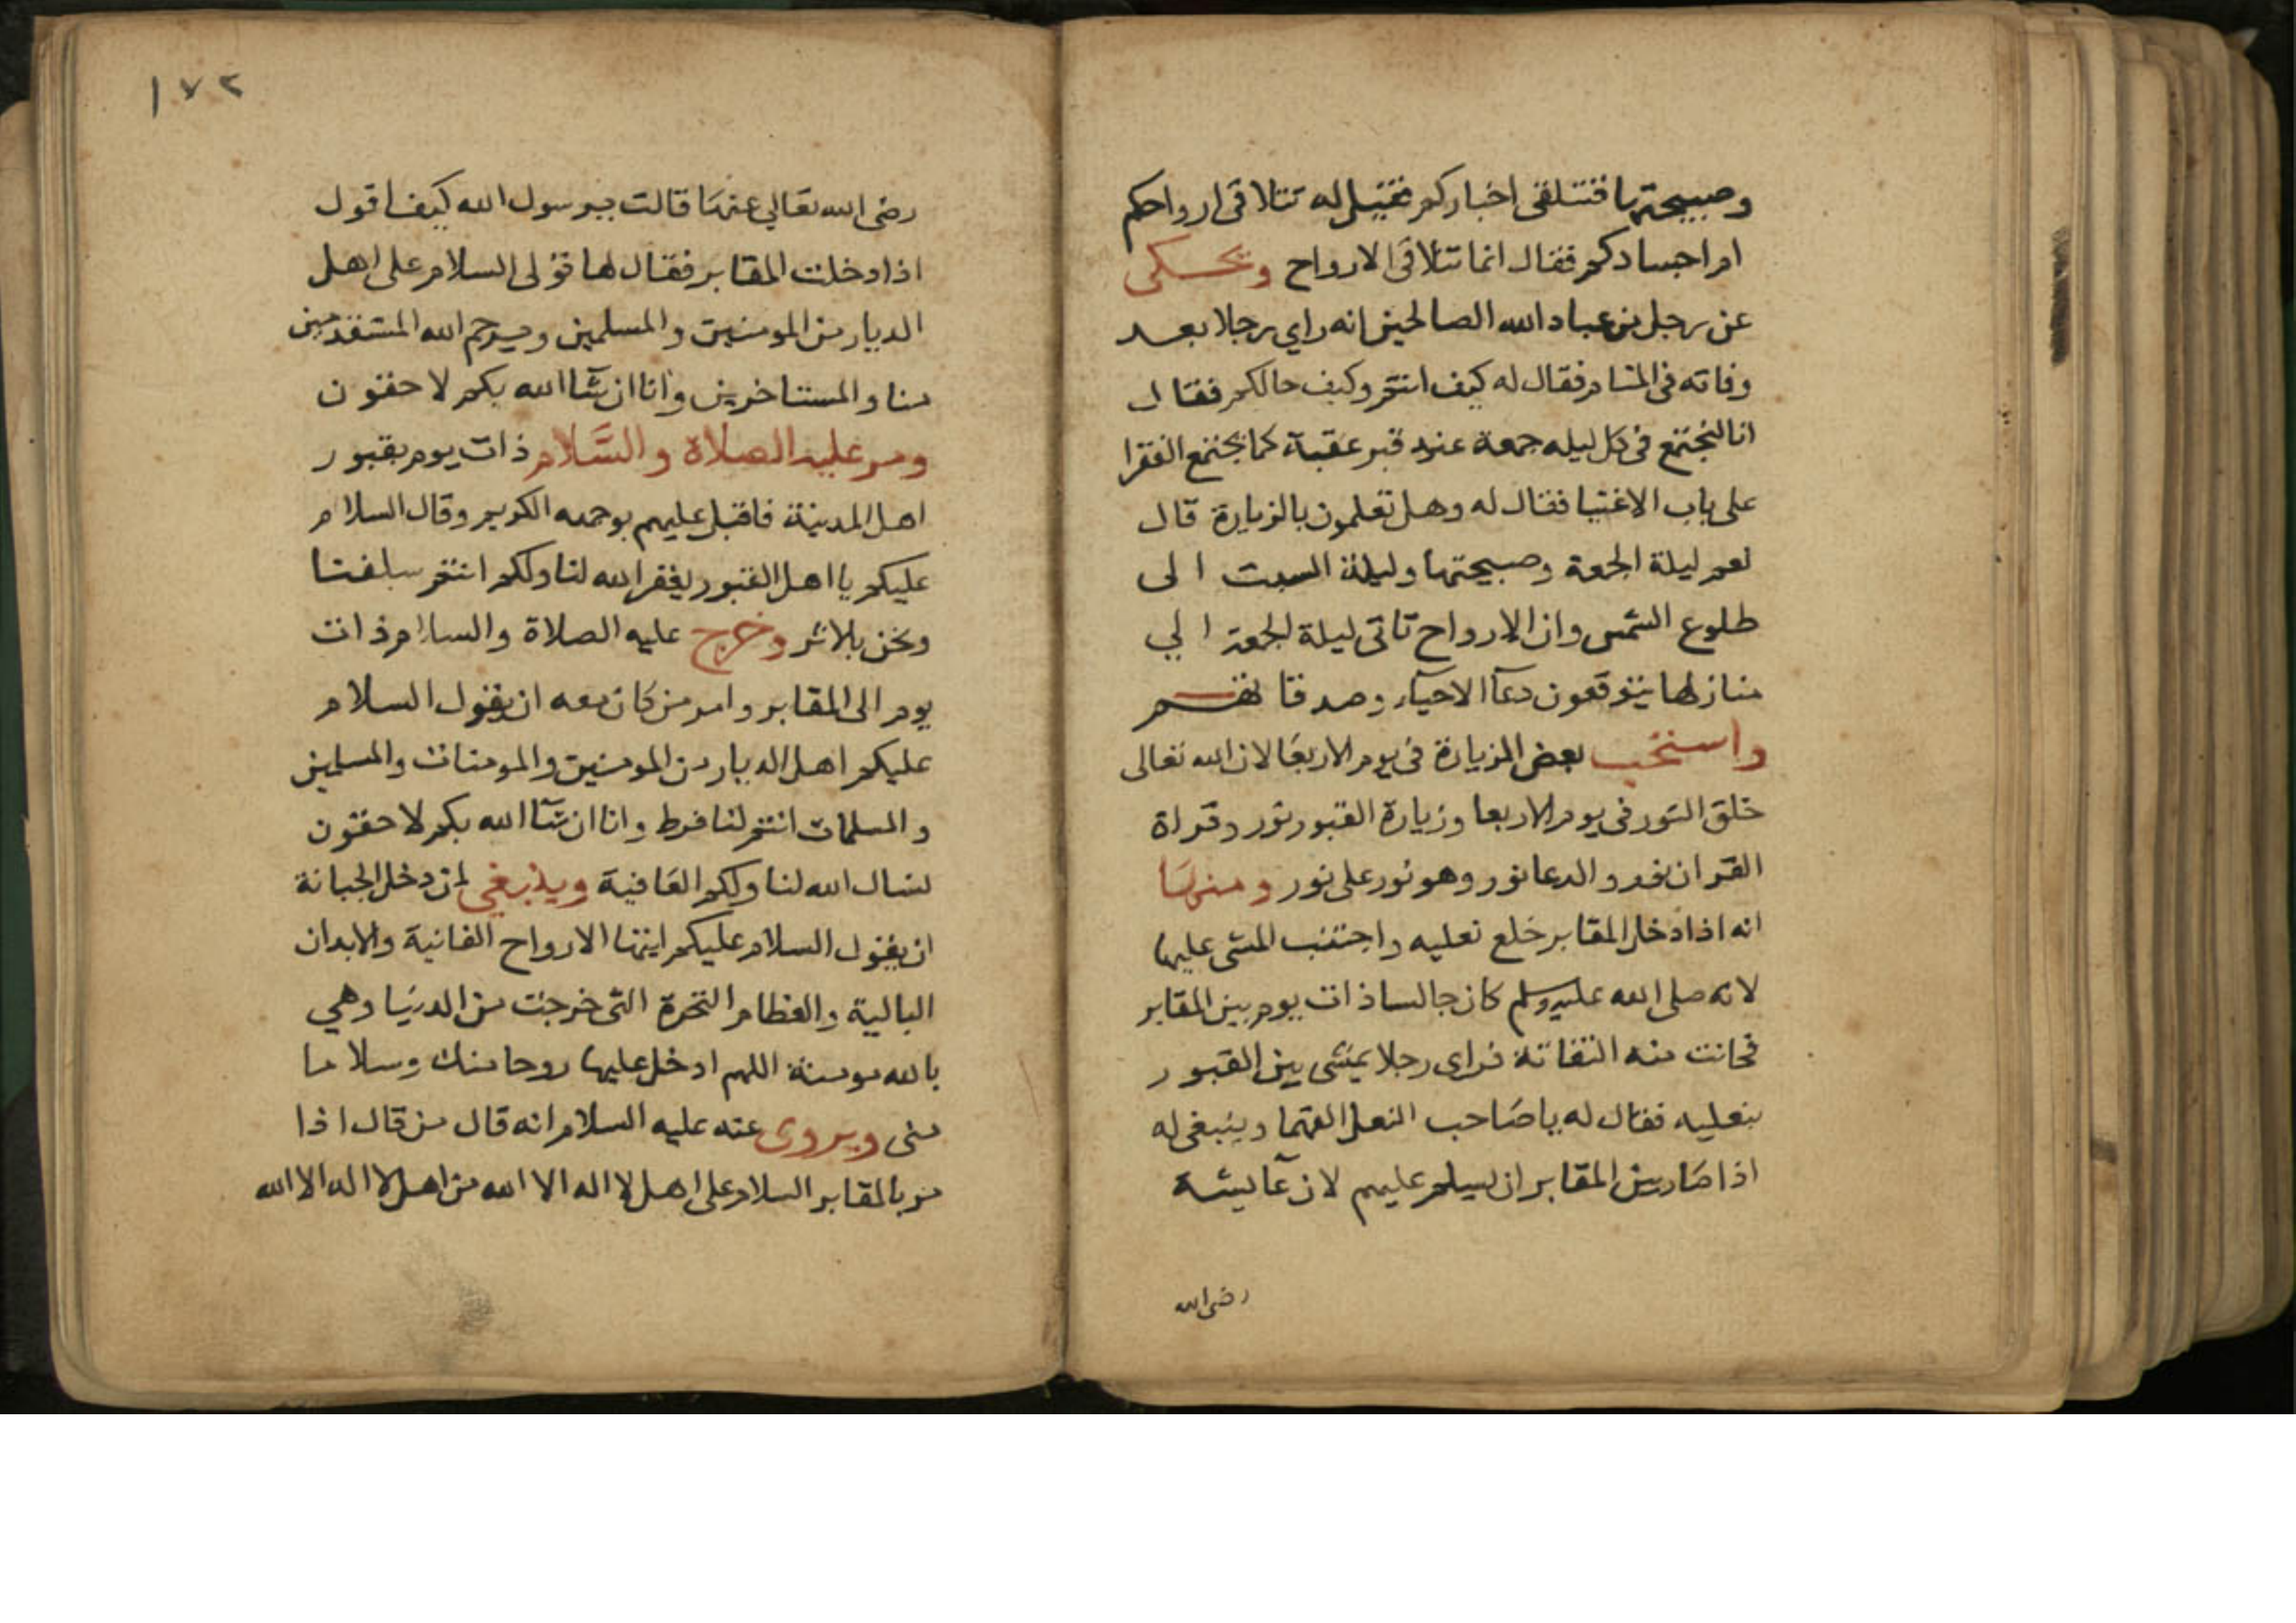 وصبيحتها فتتلقى اخباركم فقيل له تتلاقى ارواحكم
ام اجسادكم فقال انما تتلاقى الارواح ويحكى
عن رجل من عباد الله الصالحين انه راي رجلا بعد
وفاته في المنام فقال له كيف انتم وكيف حالكم فقال
انا لنجتمع في كل ليله جمعة عند قبر عقبة كما يجتمع الفقرا
على باب الاغنيا فقال له وهل تعلمون بالزيارة قال
نعم ليلة الجمعة وصبيحتها وليلة السبت الى
طلوع الشمس وان الارواح تاتى ليلة الجمعة الي
منازلها يتوقعون دعآ الاحيآء وصدقاتهم
واستحب بعض الزيارة في يوم الاربعا لان الله تعالى
خلق النور في يوم الاربعا وزيارة القبور نور وقراة
القران نور والدعا نور وهو نور على نور ومنها
انه اذا دخل المقابر خلع نعليه واجتنب المشي عليها
لانه صلى الله عليه وسلم كان جالسا ذات يوم بين المقابر
فحانت منه التفاتة فراى رجلا يمشى بين القبور
بنعليه فقال له يا صاحب النعل القهما وينبغى له
اذا صار بين المقابر ان يسلم عليهم لان عآيشة
رضى الله
١٧٢
رضى الله تعالي عنها قالت يرسول الله كيف اقول
اذا دخلت المقابر فقال لها قولى السلام على اهل
الديار من المومنين والمسلمين ويرحم الله المستقدمين
منا والمستاخرين وانا ان شآ الله بكم لاحقون
ومر عليه الصلاة والسلام ذات يوم بقبور
اهل المدينة فاقبل عليهم بوجهه الكريم وقال السلام
عليكم يا اهل القبور يغفر الله لنا ولكم انتم سلفنا
ونحن بلاثر وخرج عليه الصلاة والسلام ذات
يوم الى المقابر وامر من كان معه ان يقول السلام
عليكم اهل الديار من المومنين والمومنات والمسلمين
والمسلمات انتم لنا فرط وانا ان شآ الله بكم لاحقون
نسال الله لنا ولكم العافية وينبغي لمن دخل الجبانة
ان يقول السلام عليكم ايتها الارواح الفانية والابدان
البالية والعظام النخرة التى خرجت من الدنيا وهي
بالله مومنة اللهم ادخل عليها روحا منك وسلاما
منى ويروى عنه عليه السلام انه قال من قال اذا
مر بالمقابر السلام على اهل لا اله الا الله من اهل لا اله الا الله